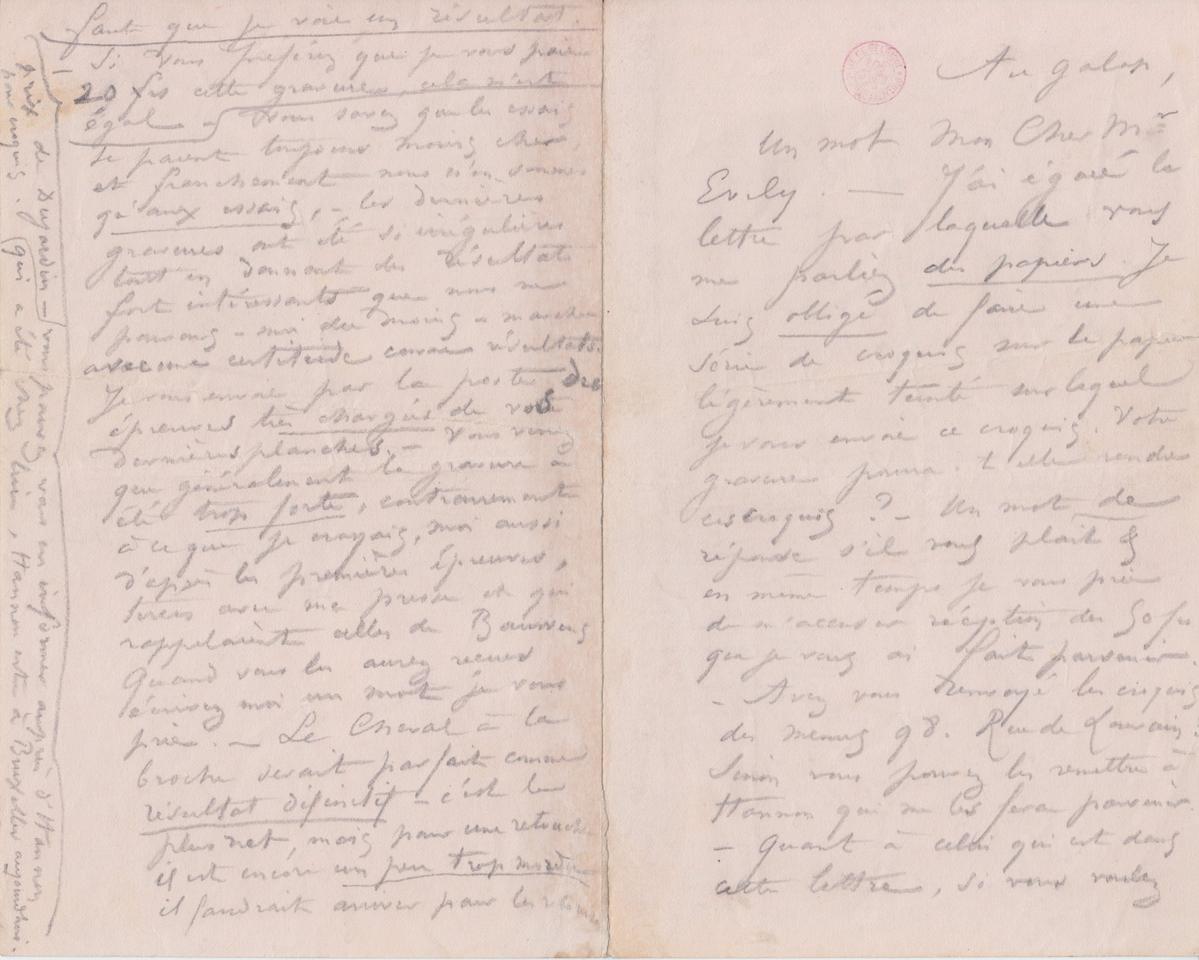 Au galop,
Un mot Mon Cher Mr
Evely. — J'ai égaré la
lettre par laquelle vous
me parliez des papiers. Je
suis obligé de faire une
série de croquis sur le papier
légèrement teinté sur lequel
je vous envoie ce croquis. Votre
gravure pourra-t-elle rendre
ces croquis ? — Un mot de
réponse s'il vous plait &
en même temps je vous prie
de m'accuser réception des 50 frs
que je vous ai fait parvenir.
— Avez vous renvoyé les croquis
des menus 98. Rue de Louvain.
Sinon vous pouvez les remettre à
Hannon qui me les fera parvenir
— Quant à celui qui est dans
cette lettre, si vous voulez
faut que je voie un résultat.
Si vous préférez que je vous paie
20 frs cette gravure, cela m'est
égal — Vous savez que les essais
se paient toujours moins cher,
et franchement nous n'en sommes
qu'aux essais, — les dernières
gravures ont été si irrégulières
tout en donnant des résultats
fort intéressants que nous ne
pouvons — moi du moins — marcher
avec une certitude comme résultats.
Je vous envoie par la poste des
épreuves très chargées de vos
dernières planches. — Vous verrez
que généralement la gravure a
été trop forte, contrairement
à ce que je croyais, moi aussi
d'après les premières épreuves,
tirées avec ma presse et qui
rappelaient celles de Bouwens
Quand vous les aurez reçues
écrivez moi un mot je vous
prie. — Le Cheval à la
broche serait parfait comme
résultat définitif — c'est le
plus net, mais pour une retouche
il est encore un peu trop mordu
il faudrait arriver pour les
prix de Dujardin — vous pouvez vous en informer auprès d'Hannon
pour croquis. (qui a été chez lui, Hannon est à Bruxelles aujourd'hui.